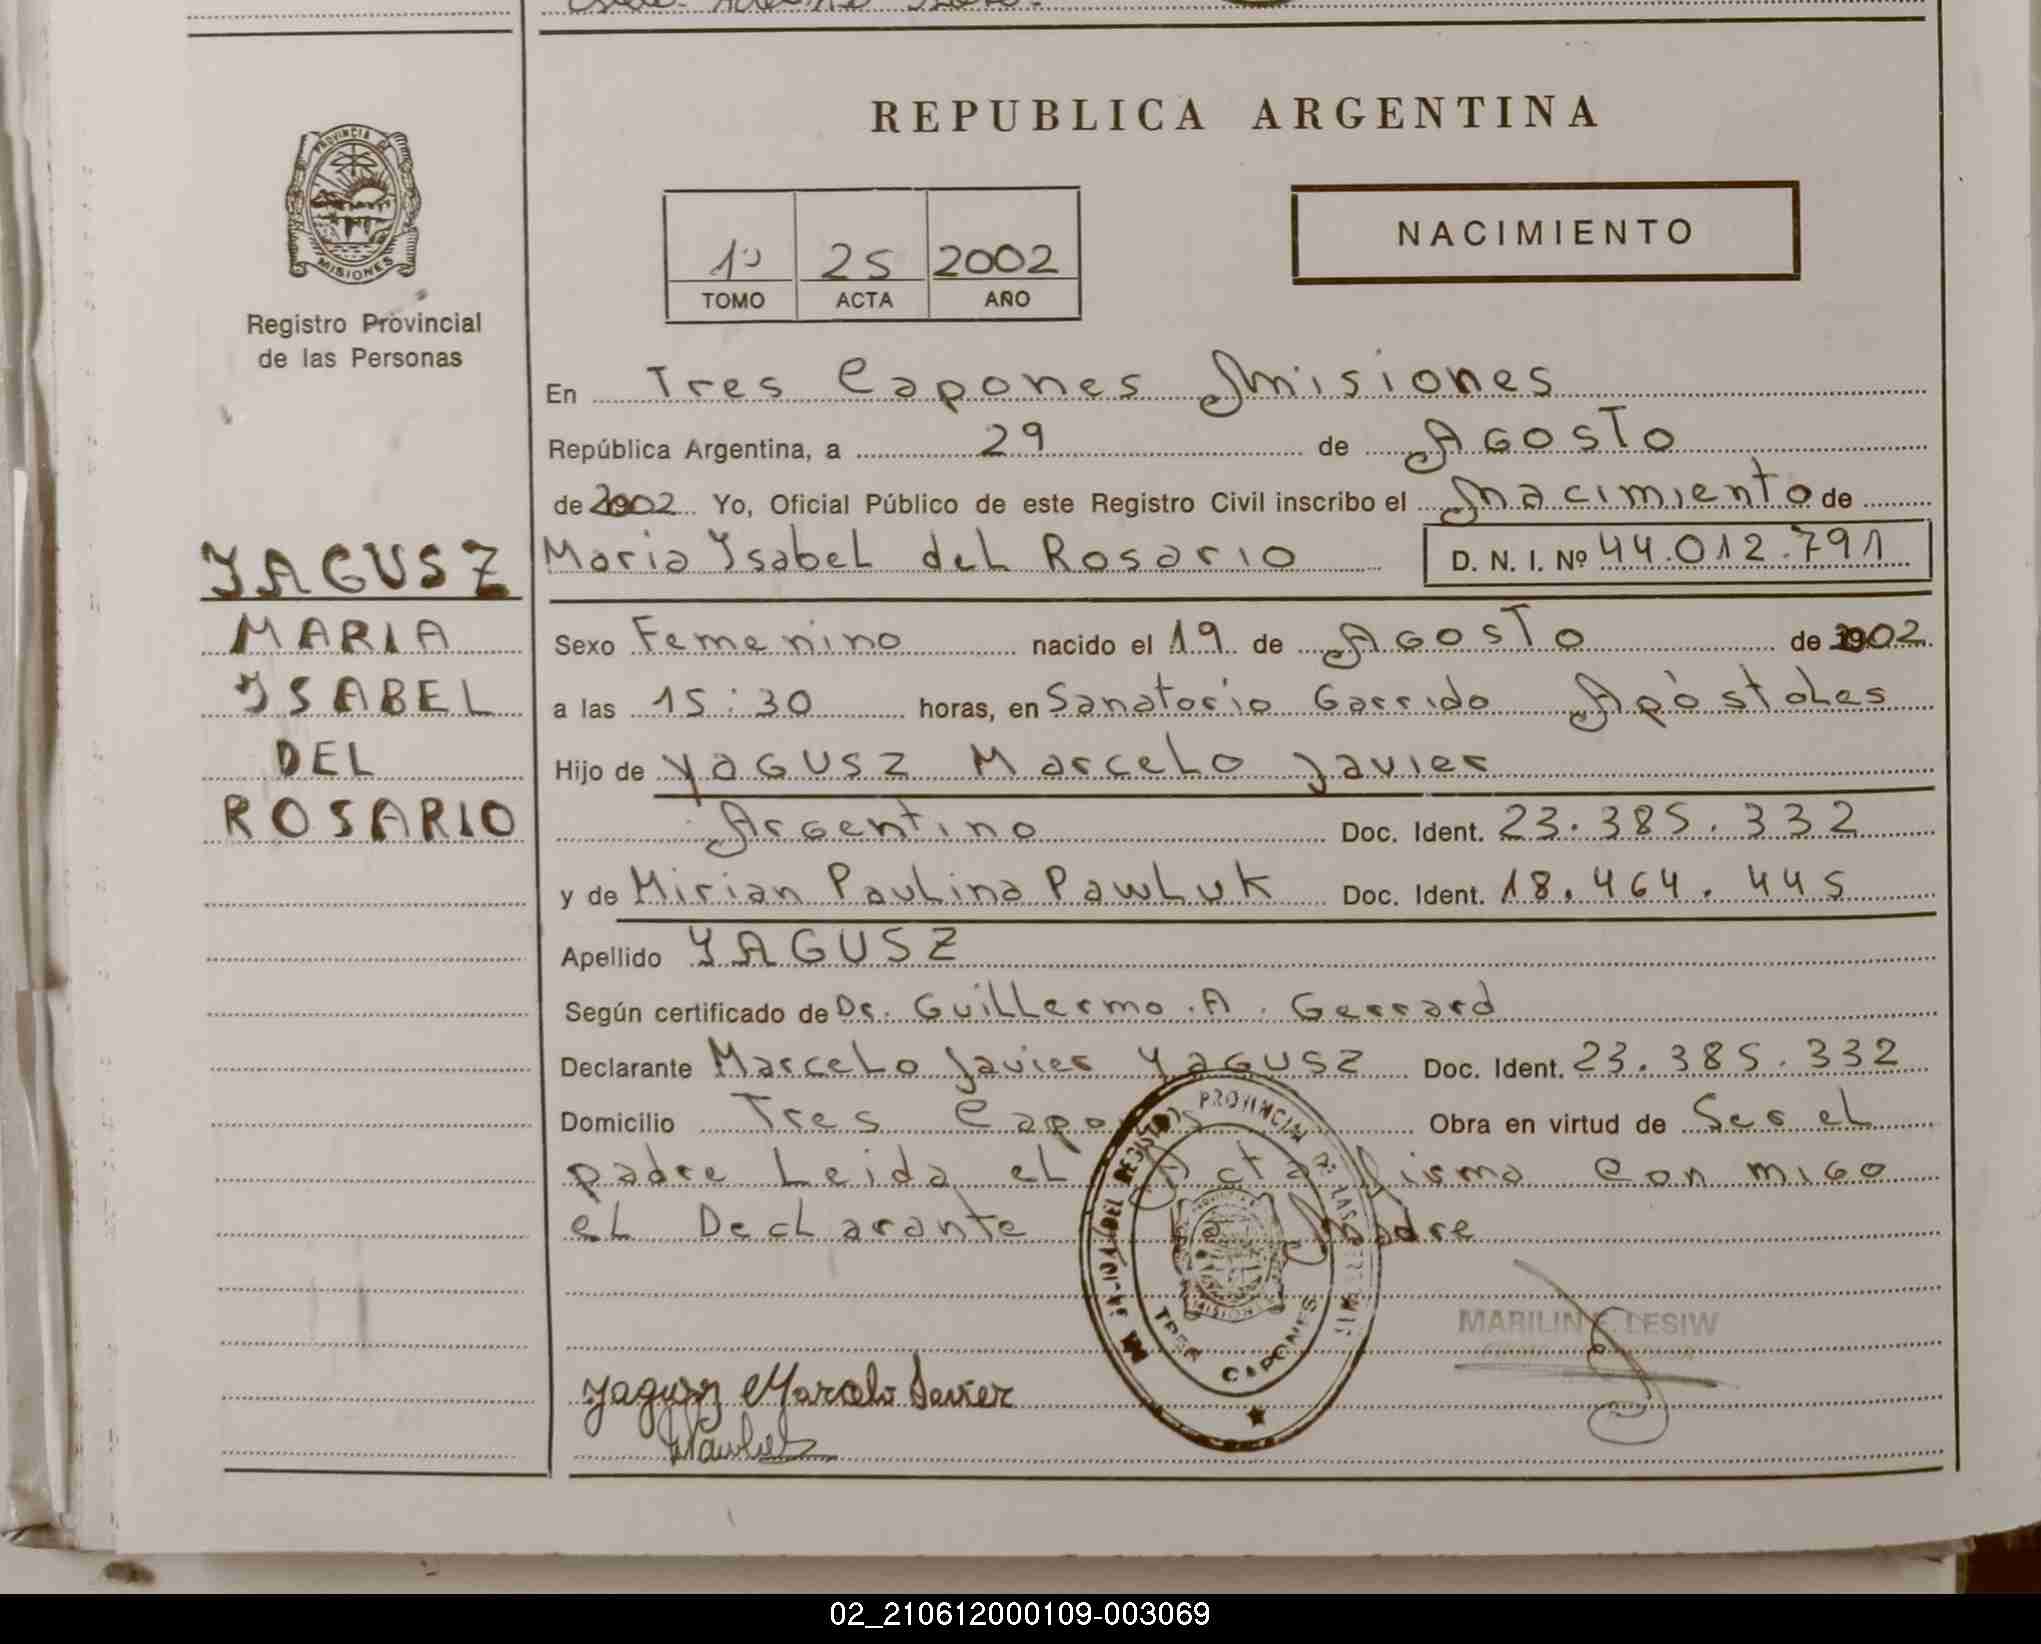 REPUBLICA ARGENTINA
PROVINCIA DE
MISIONES
Registro Provincial
de las Personas
1º 25 2002
TOMO ACTA AÑO
NACIMIENTO
En Tres Capones Misiones
República Argentina, a 29 de Agosto
de 2002 Yo, Oficial Público de este Registro Civil inscribo el Nacimiento de
YAGUSZ
MARIA
YSABEL
DEL
ROSARIO
Maria Ysabel del Rosario D. N. I. Nº 44.012.791
Sexo Femenino nacido el 19 de Agosto de 2002
a las 15:30 horas, en Sanatorio Garrido Apóstoles
Hijo de YAGUSZ Marcelo Javier
Argentino Doc. Ident. 23.385.332
y de Mirian Paulina Pawluk Doc. Ident. 18.464.445
Apellido YAGUSZ
Según certificado de Dr. Guillermo A. Gerrard
Declarante Marcelo Javier YAGUSZ Doc. Ident. 23.385.332
Domicilio Tres Capones Obra en virtud de Ser el
padre Leida el Acta firma con migo
el Declarante Madre
PROVINCIAL DE LAS
TRES CAPONES
MISIONES
MARILIN LESIW
Yagusz Marcelo Javier
02_210612000109-003069